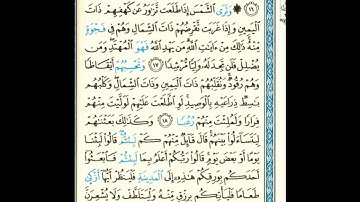 ١٦ ۞ وَتَرَى ٱلشَّمْسَ إِذَا طَلَعَت تَّزَٰوَرُ عَن كَهْفِهِمْ ذَاتَ
ٱلْيَمِينِ وَإِذَا غَرَبَت تَّقْرِضُهُمْ ذَاتَ ٱلشِّمَالِ وَهُمْ فِى فَجْوَةٍ
مِّنْهُ ذَٰلِكَ مِنْ ءَايَٰتِ ٱللَّهِ مَن يَهْدِ ٱللَّهُ فَهُوَ ٱلْمُهْتَدِ وَمَن
يُضْلِلْ فَلَن تَجِدَ لَهُۥ وَلِيًّا مُّرْشِدًا ١٧ وَتَحْسَبُهُمْ أَيْقَاظًا
وَهُمْ رُقُودٌ وَنُقَلِّبُهُمْ ذَاتَ ٱلْيَمِينِ وَذَاتَ ٱلشِّمَالِ وَكَلْبُهُم
بَٰسِطٌ ذِرَاعَيْهِ بِٱلْوَصِيدِ لَوِ ٱطَّلَعْتَ عَلَيْهِمْ لَوَلَّيْتَ مِنْهُمْ
فِرَارًا وَلَمُلِئْتَ مِنْهُمْ رُعْبًا ١٨ وَكَذَٰلِكَ بَعَثْنَٰهُمْ
لِيَتَسَآءَلُوا۟ بَيْنَهُمْ قَالَ قَآئِلٌ مِّنْهُمْ كَمْ لَبِثْتُمْ قَالُوا۟ لَبِثْنَا
يَوْمًا أَوْ بَعْضَ يَوْمٍ قَالُوا۟ رَبُّكُمْ أَعْلَمُ بِمَا لَبِثْتُمْ فَٱبْعَثُوٓا۟
أَحَدَكُم بِوَرِقِكُمْ هَٰذِهِۦٓ إِلَى ٱلْمَدِينَةِ فَلْيَنظُرْ أَيُّهَآ أَزْكَىٰ
طَعَامًا فَلْيَأْتِكُم بِرِزْقٍ مِّنْهُ وَلْيَتَلَطَّفْ وَلَا يُشْعِرَنَّ